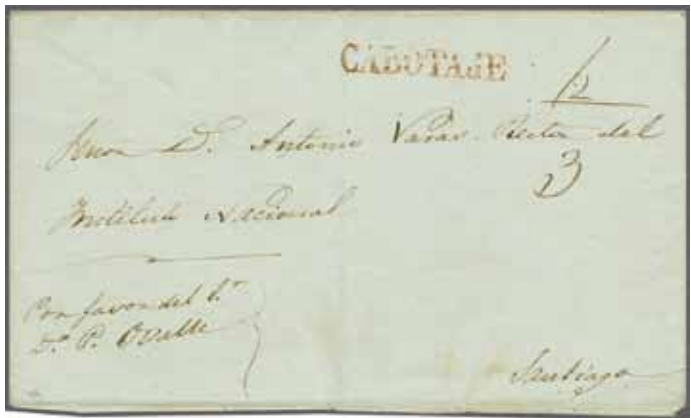 CABOTAJE
1/2
Señor D. Antonio Varas Rector del
3
Instituto Nacional
Por favor del Sr
Dn. P. Ovalle
Santiago